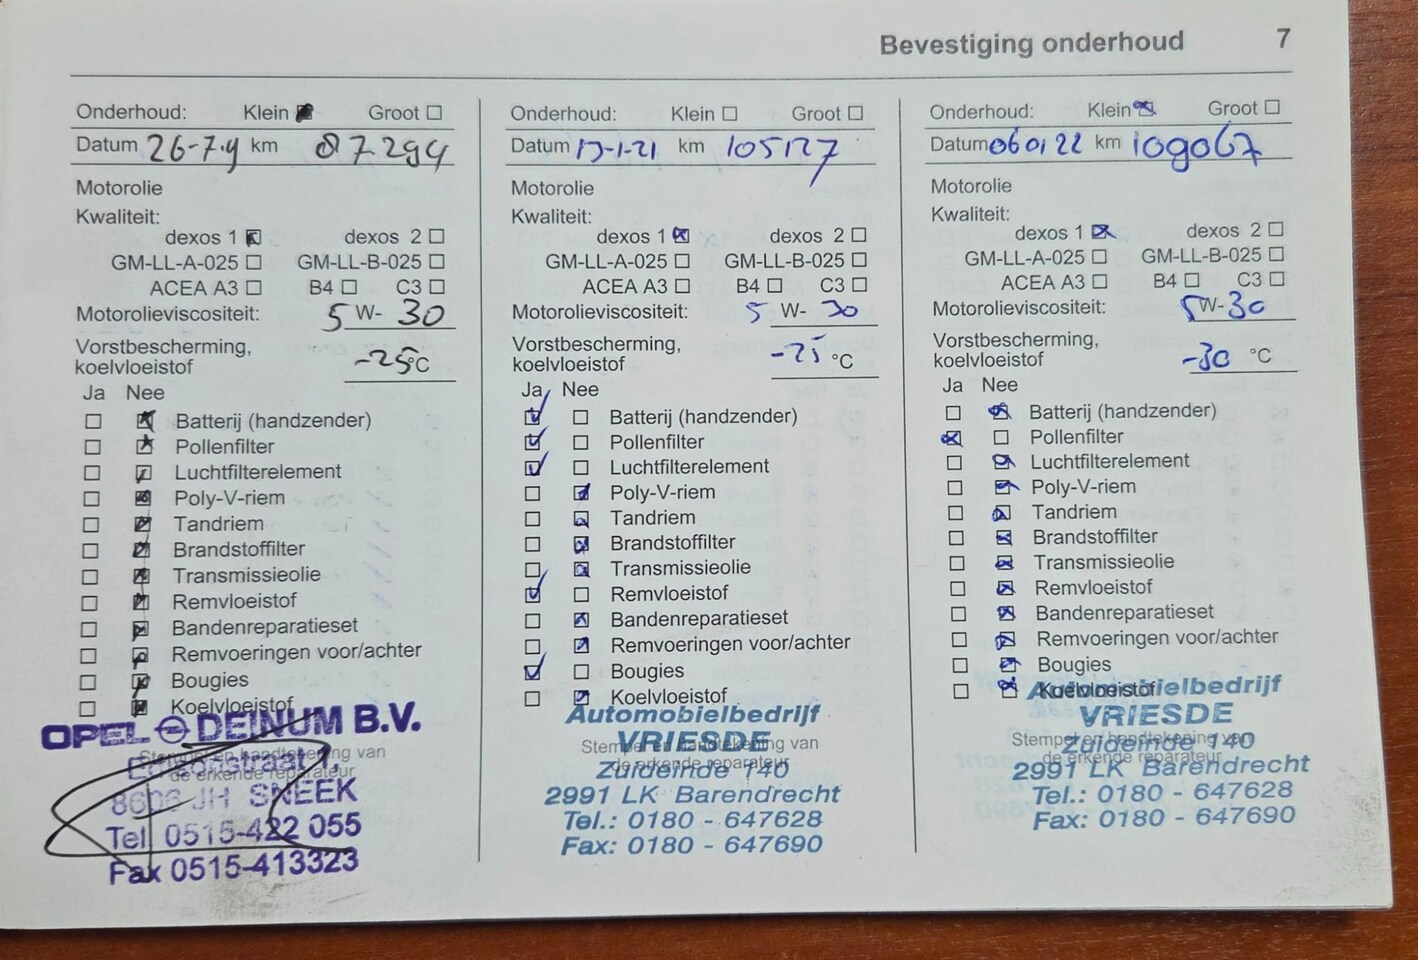 Bevestiging onderhoud 7
Onderhoud: Klein Groot
Datum 26-7-19 km 87294
Motorolie
Kwaliteit:
dexos 1 dexos 2
GM-LL-A-025 GM-LL-B-025
ACEA A3 B4 C3
Motorolieviscositeit: 5 W- 30
Vorstbescherming,
koelvloeistof -25°C
Ja Nee
Batterij (handzender)
Pollenfilter
Luchtfilterelement
Poly-V-riem
Tandriem
Brandstoffilter
Transmissieolie
Remvloeistof
Bandenreparatieset
Remvoeringen voor/achter
Bougies
Koelvloeistof
OPEL DEINUM B.V.
Stempel en handtekening van
de erkende reparateur
8606 JH SNEEK
Tel 0515-422 055
Fax 0515-413323
Onderhoud: Klein Groot
Datum km 105127
Motorolie
Kwaliteit:
dexos 1 dexos 2
GM-LL-A-025 GM-LL-B-025
ACEA A3 B4 C3
Motorolieviscositeit: 5 W- 30
Vorstbescherming,
koelvloeistof -25 °C
Ja Nee
Batterij (handzender)
Pollenfilter
Luchtfilterelement
Poly-V-riem
Tandriem
Brandstoffilter
Transmissieolie
Remvloeistof
Bandenreparatieset
Remvoeringen voor/achter
Bougies
Koelvloeistof
Automobielbedrijf
Stempel en handtekening van
VRIESDE
de erkende reparateur
Zuideinde 140
2991 LK Barendrecht
Tel.: 0180 - 647628
Fax: 0180 - 647690
Onderhoud: Klein Groot
Datum 060122 km 109067
Motorolie
Kwaliteit:
dexos 1 dexos 2
GM-LL-A-025 GM-LL-B-025
ACEA A3 B4 C3
Motorolieviscositeit: 5W-30
Vorstbescherming,
koelvloeistof -30 °C
Ja Nee
Batterij (handzender)
Pollenfilter
Luchtfilterelement
Poly-V-riem
Tandriem
Brandstoffilter
Transmissieolie
Remvloeistof
Bandenreparatieset
Remvoeringen voor/achter
Bougies
Koelvloeistof
Automobielbedrijf
VRIESDE
Stempel en handtekening van
Zuideinde 140
de erkende reparateur
2991 LK Barendrecht
Tel.: 0180 - 647628
Fax: 0180 - 647690